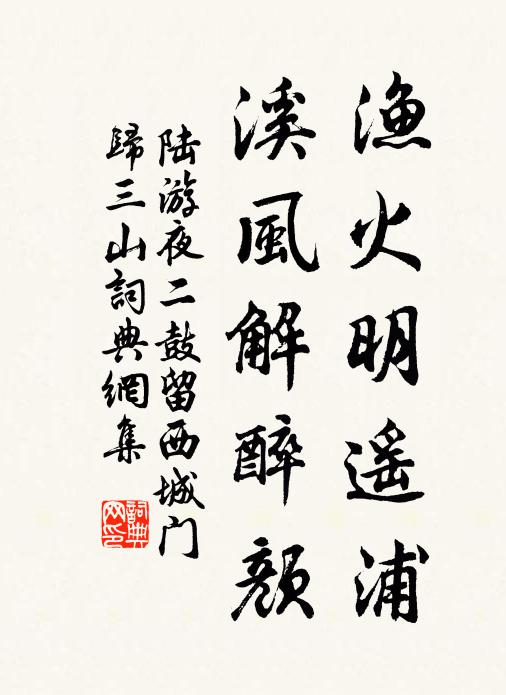 漁火明遥浦
溪風解醉顔
陆游夜二鼓留西城门
歸三山詞典網集
詞典
网印